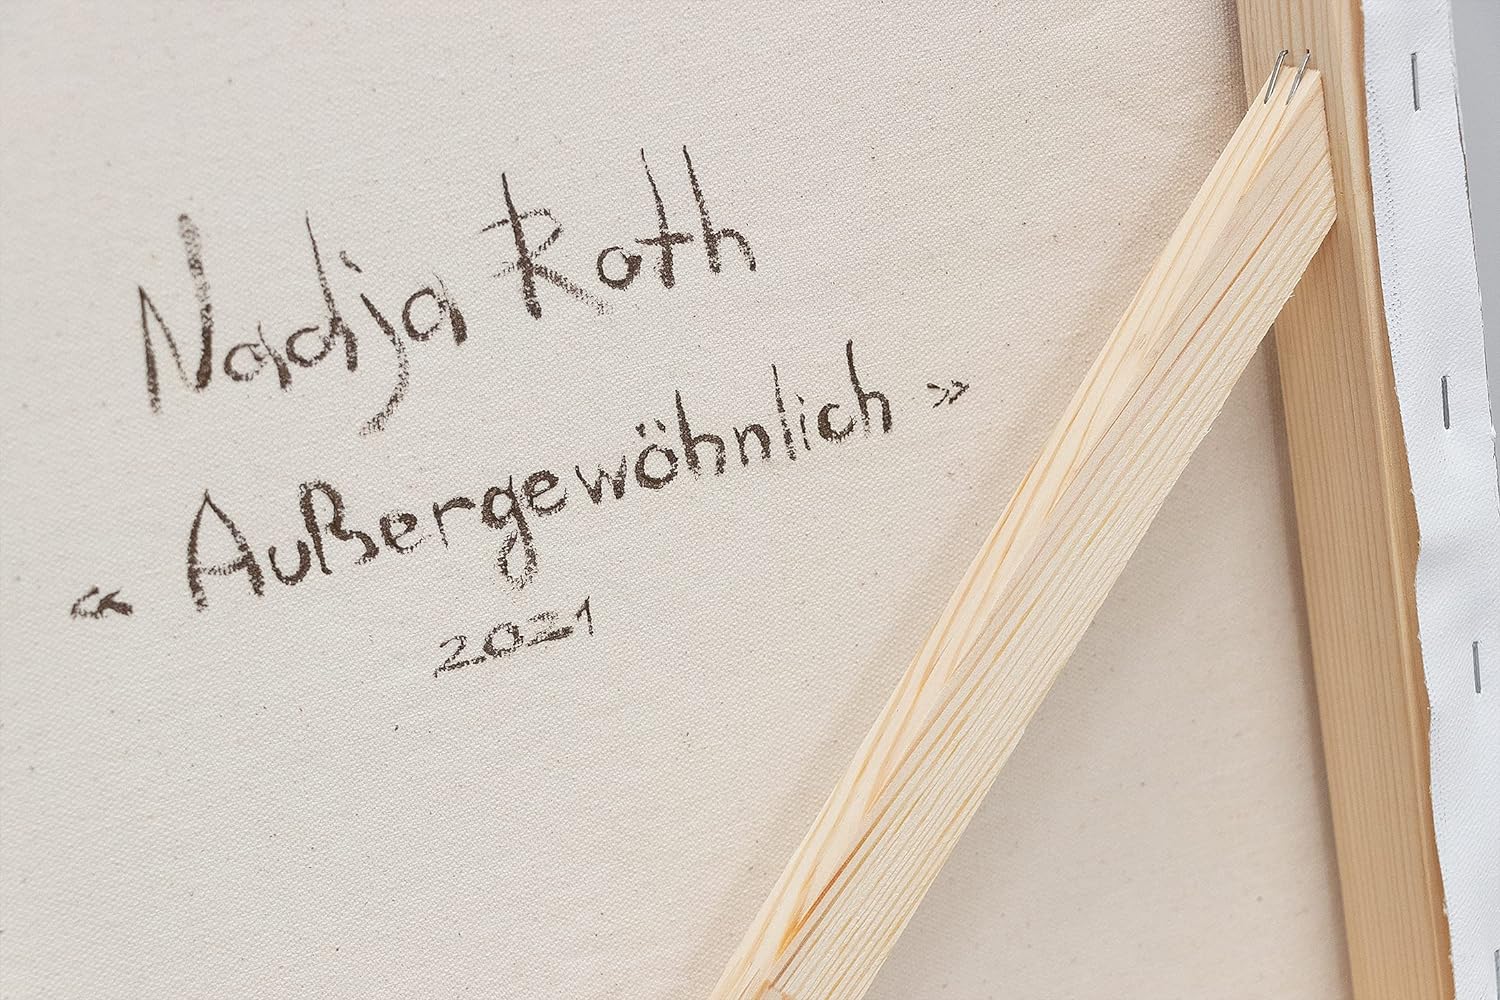 Nadja Roth
« Außergewöhnlich »
2021